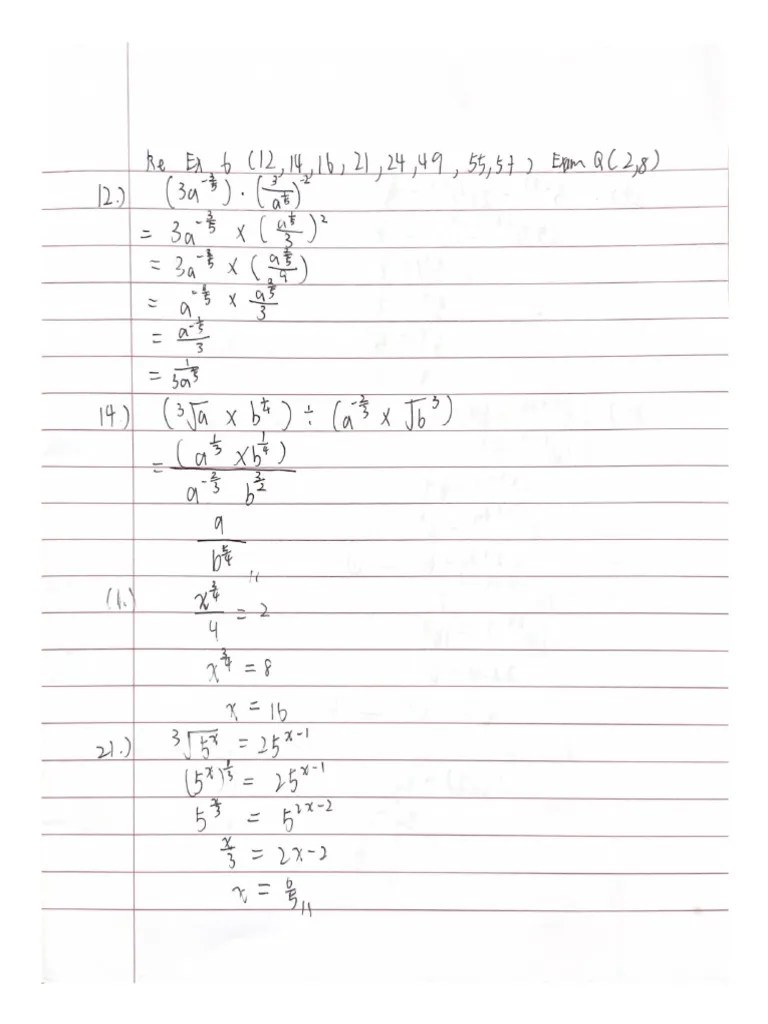 Re Ex 6 (12, 14, 16, 21, 24, 49, 55, 57) Exam Q (2,8)
12.) (3a^{-3/5}) · (3/a^{1/5})^{-2}
= 3a^{-3/5} × (a^{1/5}/3)^2
= 3a^{-3/5} × (a^{2/5}/9)
= × a^{2/5}/3
= a^{-1/5}/3
14.) (³√a × b^{1/4}) ÷ (a^{-2/3} × √b^3)
= (a^{1/3} × b^{1/4}) / a^{-2/3} b^{3/2}
a / b^{5/4} //
x^{3/4}/4 = 2
x^{3/4} = 8
x = 16
21.) ³√5^x = 25^{x-1}
(5^x)^{1/3} = 25^{x-1}
5^{x/3} = 5^{2x-2}
x/3 = 2x-2
x = 6/5 //